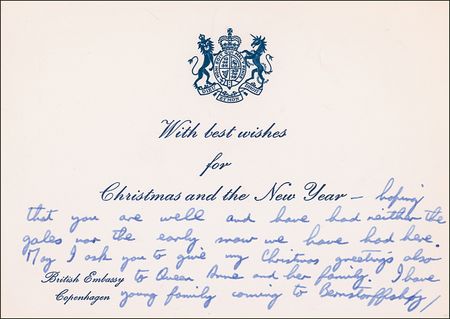 With best wishes
for
Christmas and the New Year – hoping
that you are well and have had neither the
gales nor the early snow we have had here.
May I ask you to give my Christmas greetings also
British Embassy to Queen Anne and her family. I have
Copenhagen young family coming to Bernstorffshøj,